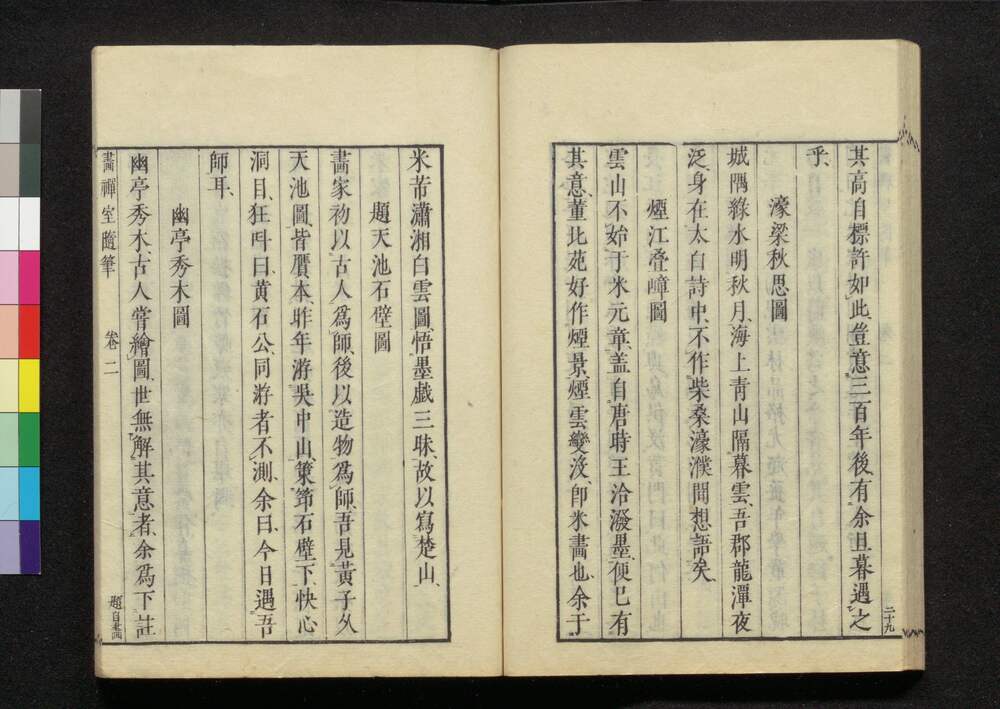 二十九
其高自標許如此、豈意三百年後、有余旦暮遇之
乎、
濠梁秋思圖
城隅綠水明秋月、海上靑山隔暮雲、吾郡龍潭夜
泛、身在太白詩中、不作柴桑濠濮間想語矣、
煙江叠嶂圖
雲山不始于米元章、盖自唐時王洽潑墨、便已有
其意、董北苑好作煙景、煙雲變沒、卽米畵也、余于
米芾瀟湘白雲圖、悟墨戯三昧、故以寫楚山、
題天池石壁圖
畵家初以古人爲師、後以造物爲師、吾見黃子久
天池圖、皆贋本、昨年游吳中山、策筇石壁下、快心
洞目、狂呌曰、黃石公、同游者不測、余曰、今日遇吾
師耳、
幽亭秀木圖
幽亭秀木、古人嘗繪圖、世無解其意者、余爲下註
畵禪室隨筆
卷二
題自畵